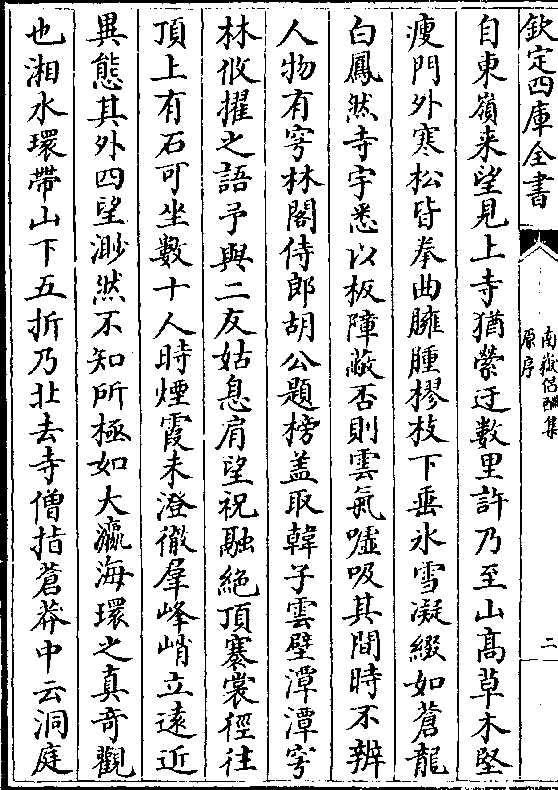 欽定四庫全書
南嶽倡酬集
原序
二
自東嶺来望見上寺猶縈迂數里許乃至山髙草木堅
瘦門外寒松皆拳曲臃腫樛枝下垂氷雪凝綴如蒼龍
白鳳然寺宇悉以板障蔽否則雲氣噓吸其間時不辨
人物有穹林閣侍郎胡公題榜盖取韓子雲壁潭潭穹
林攸擢之語予與二友姑息肩望祝融絶頂褰裳徑往
頂上有石可坐數十人時煙霞未澄徹羣峰峭立遠近
異態其外四望渺然不知所極如大瀛海環之真奇觀
也湘水環帶山下五折乃北去寺僧指蒼莽中云洞庭